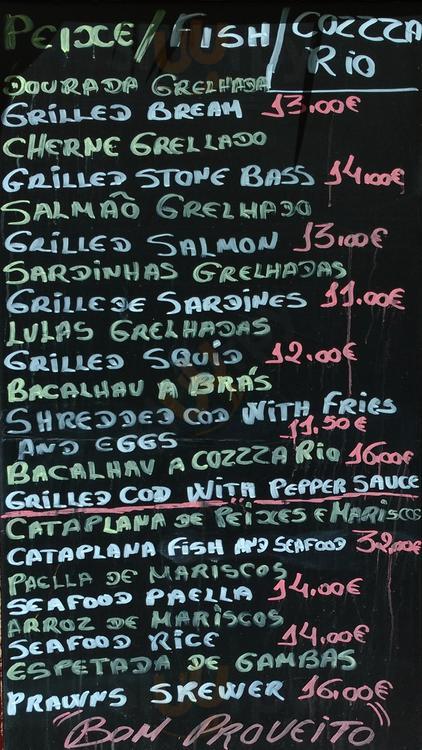 PEIXE/FISH/COZZZA
RIO
DOURADA GRELHADA
GRILLED BREAM 13.00€
CHERNE GRELLADO
GRILLED STONE BASS 14.00€
SALMÃO GRELHADO
GRILLED SALMON 13.00€
SARDINHAS GRELHADAS
GRILLEDE SARDINES 11.00€
LULAS GRELHADAS
GRILLED SQUID 12.00€
BACALHAU A BRÁS
SHREDDED COD WITH FRIES
AND EGGS 11.50€
BACALHAU A COZZZA RIO 16.00€
GRILLED COD WITH PEPPER SAUCE
CATAPLANA DE PEIXES E MARISCOS
CATAPLANA FISH AND SEAFOOD 32.00€
PAELLA DE MARISCOS
SEAFOOD PAELLA 14.00€
ARROZ DE MARISCOS
SEAFOOD RICE 14.00€
ESPETADA DE GAMBAS
PRAWNS SKEWER 16.00€
"BOM PROVEITO"